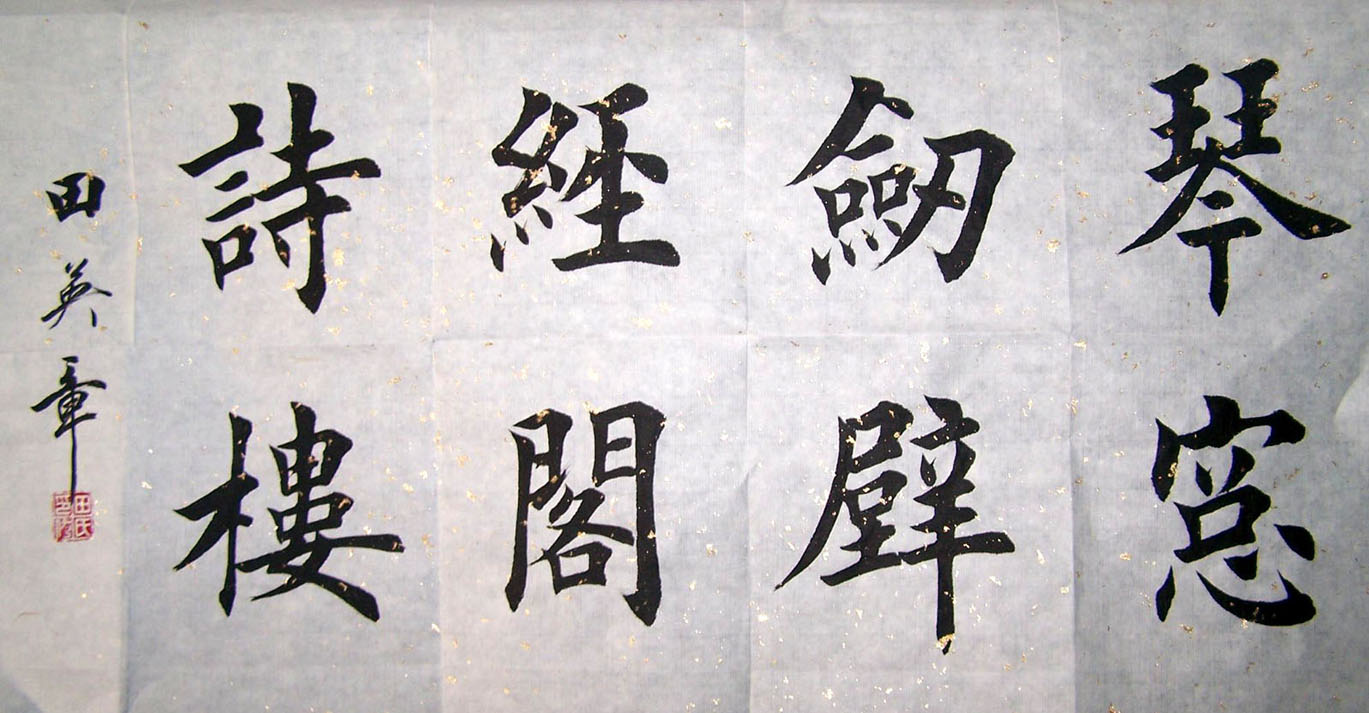 琴窓
劒壁
經閣
詩樓
田英章
田氏